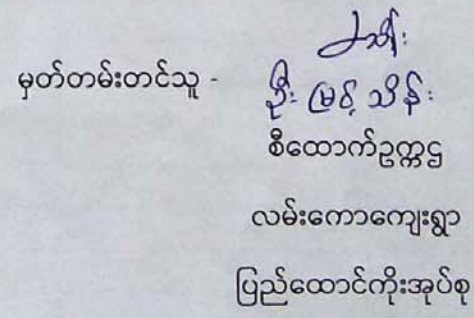 မှတ်တမ်းတင်သူ -
ဦး မြင့် သိန်း
စီထောက်ဥက္ကဌ
လမ်းကောကျေးရွာ
ပြည်ထောင်ကိုးအုပ်စု